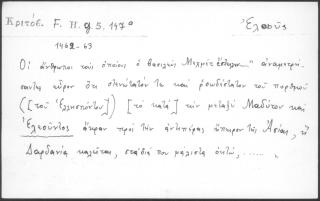 Κριτόβ. F. H. g 5. 147α
Ἐλεοῦς
1462-63
Οἱ ἄνθρωποι τοὺς ὁποίους ὁ βασιλεὺς Μεχμὲτ ἔστειλεν "ἀναμετρή-
σαντες εὗρον ὅτι στενώτατόν τε καὶ ῥοωδέστατον τοῦ πορθμοῦ
([τοῦ Ἑλλησπόντου]) [τὸ κατὰ] τὴν μεταξὺ Μαδύτου καὶ
Ἐλεοῦντος ἄκραν πρὸς τὴν ἀντιπέρας ἤπειρον τῆς Ἀσίας, ἣ
Δαρδανία καλεῖται, στάδιά που μάλιστα ὀκτώ, .....,